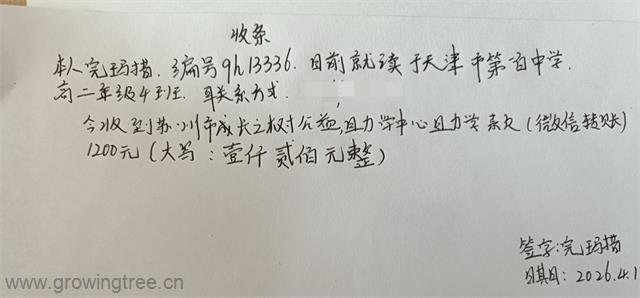 收条
本人完玛措.编号gh13336.目前就读于天津市第一百中学.
高二年级4班.联系方式.
今收到苏州市成长之树公益助学中心助学款(微信转账)
1200元(大写:壹仟贰佰元整)
签字:完玛措
日期:2026.4.1
www.growingtree.cn